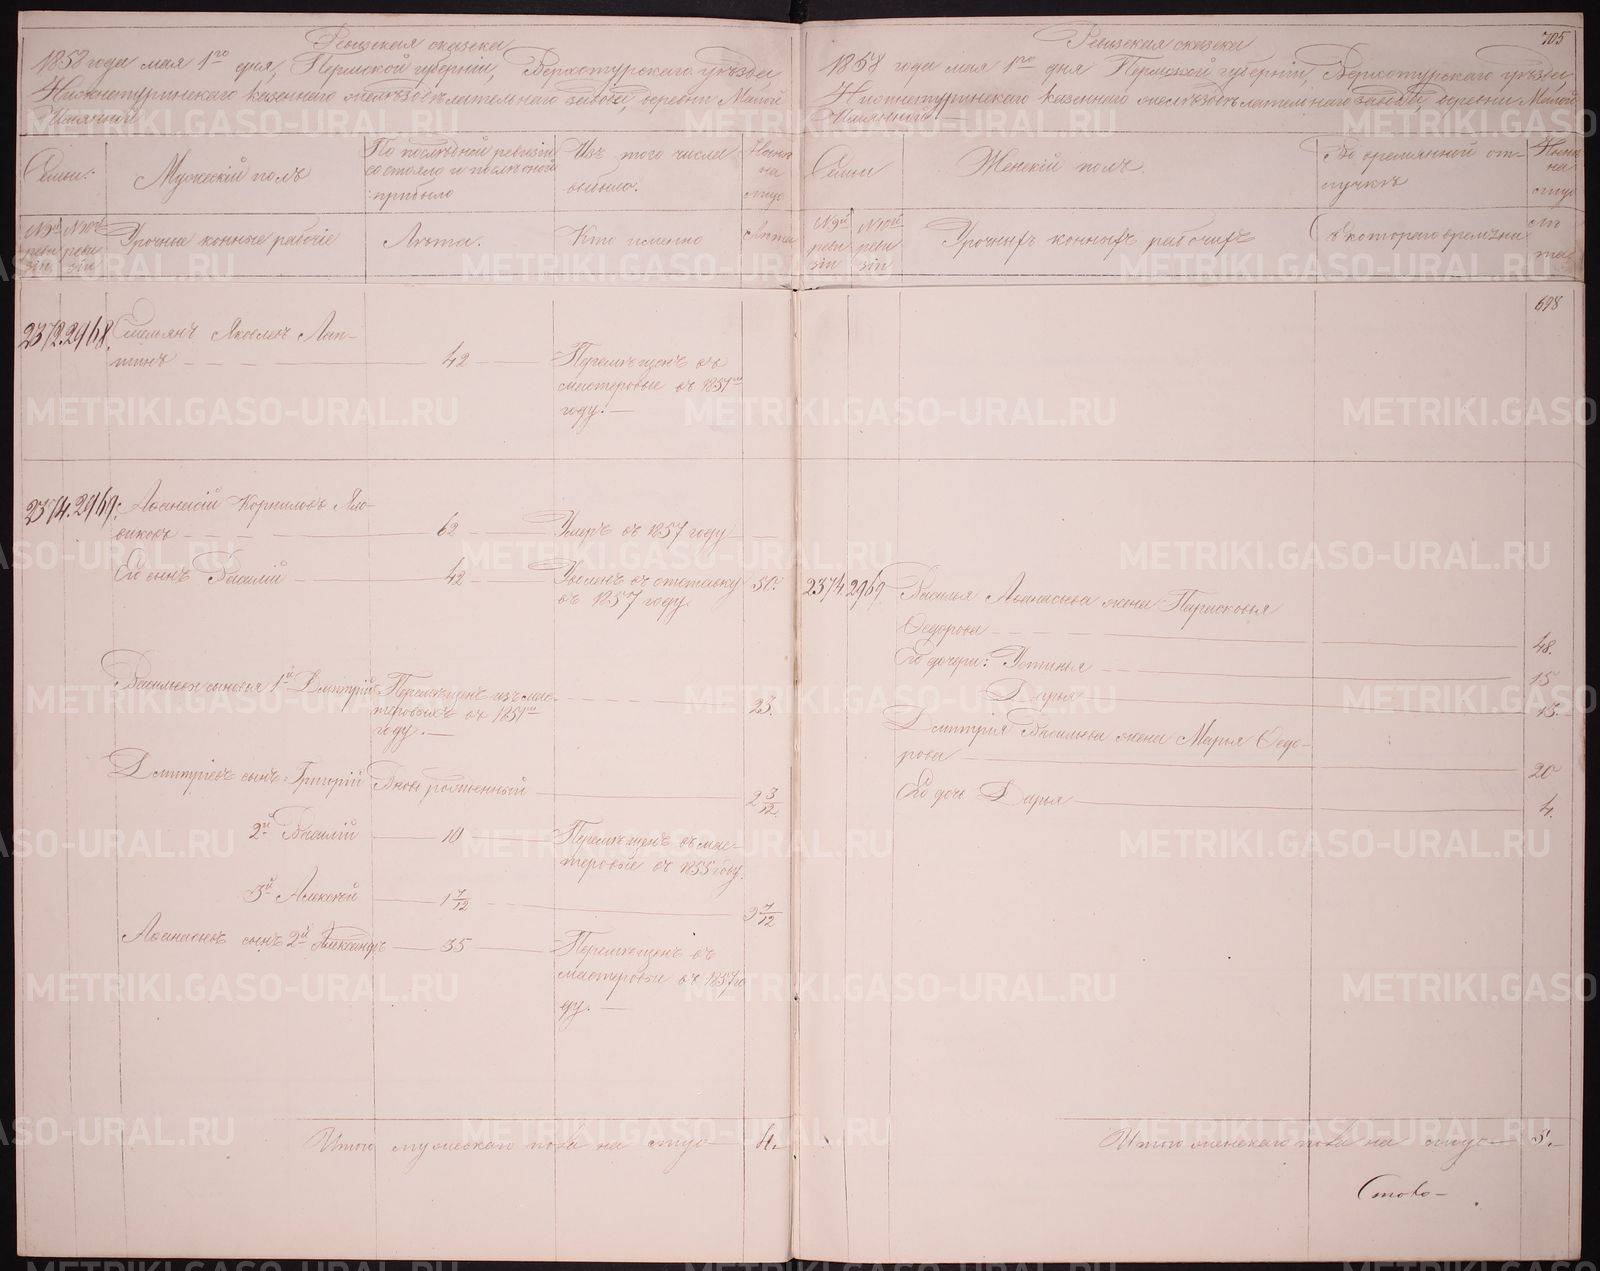 Ревизская сказка
1858 года мая 1го дня, Пермской губернiи, Верхотурскаго уѣзда
Нижнетуринскаго казеннаго желѣзодѣлательнаго завода, деревни Малой
Именной
Семьи.
Мужескiй полъ
По послѣдной ревизiи
состояло и послѣ оной
прибыло
Изъ того числа
выбыло.
Нынѣ
на
лицо
№ 9й
реви
зiи
№ 10й
реви
зiи
Урочные конные рабочiе
Лѣта.
Кто именно
Лѣта
2372. 2968.
Яковлевъ Лап-
тинъ
42
Перемѣщенъ въ
мастеровые въ 1851м
году.
2374. 2969.
Афанасiй Корниловъ Яло-
виковъ
62
Умеръ въ 1857 году
Его сынъ Василiй
42
Уволенъ въ отставку
въ 1857 году.
50.
Васильевы сыновья 1й Дмитрiй
Перемѣщенъ изъ мас-
теровыхъ въ 1851м
году.
23.
Дмитрiевъ сынъ: Григорiй
Вновь рожденный
2 3/12.
2й Василiй
10
Перемѣщенъ въ мас-
теровые въ 1855 году.
3й Алексей
1 7/12
9 7/12
Афанасьевъ сынъ 2й Александръ
35
Перемѣщенъ въ
мастеровые въ 1857 го-
ду.
Итого мужескаго пола на лицо
4.
705
Ревизская сказка
1858 года мая 1го дня Пермской губернiи, Верхотурскаго уѣзда
Нижнетуринскаго казеннаго желѣзодѣлательнаго завода, деревни Малой
Именной
Семьи
Женскiй полъ.
Во времянной от-
лучкѣ
Нынѣ
на
лицо
№ 9й
реви
зiи
№ 10й
реви
зiи
Урочныхъ конныхъ рабочихъ
Съ котораго времѣни
Лѣ
та
698
2374. 2969
Василья Афанасьева жена Парасковья
Федорова
48.
Его дочери: Устинья
15
Дарья
13.
Дмитрiя Васильева жена Марья Федо-
рова
20
Его дочь Дарья
4.
Итого женскаго пола на лицо
5.
METRIKI.GASO-URAL.RU